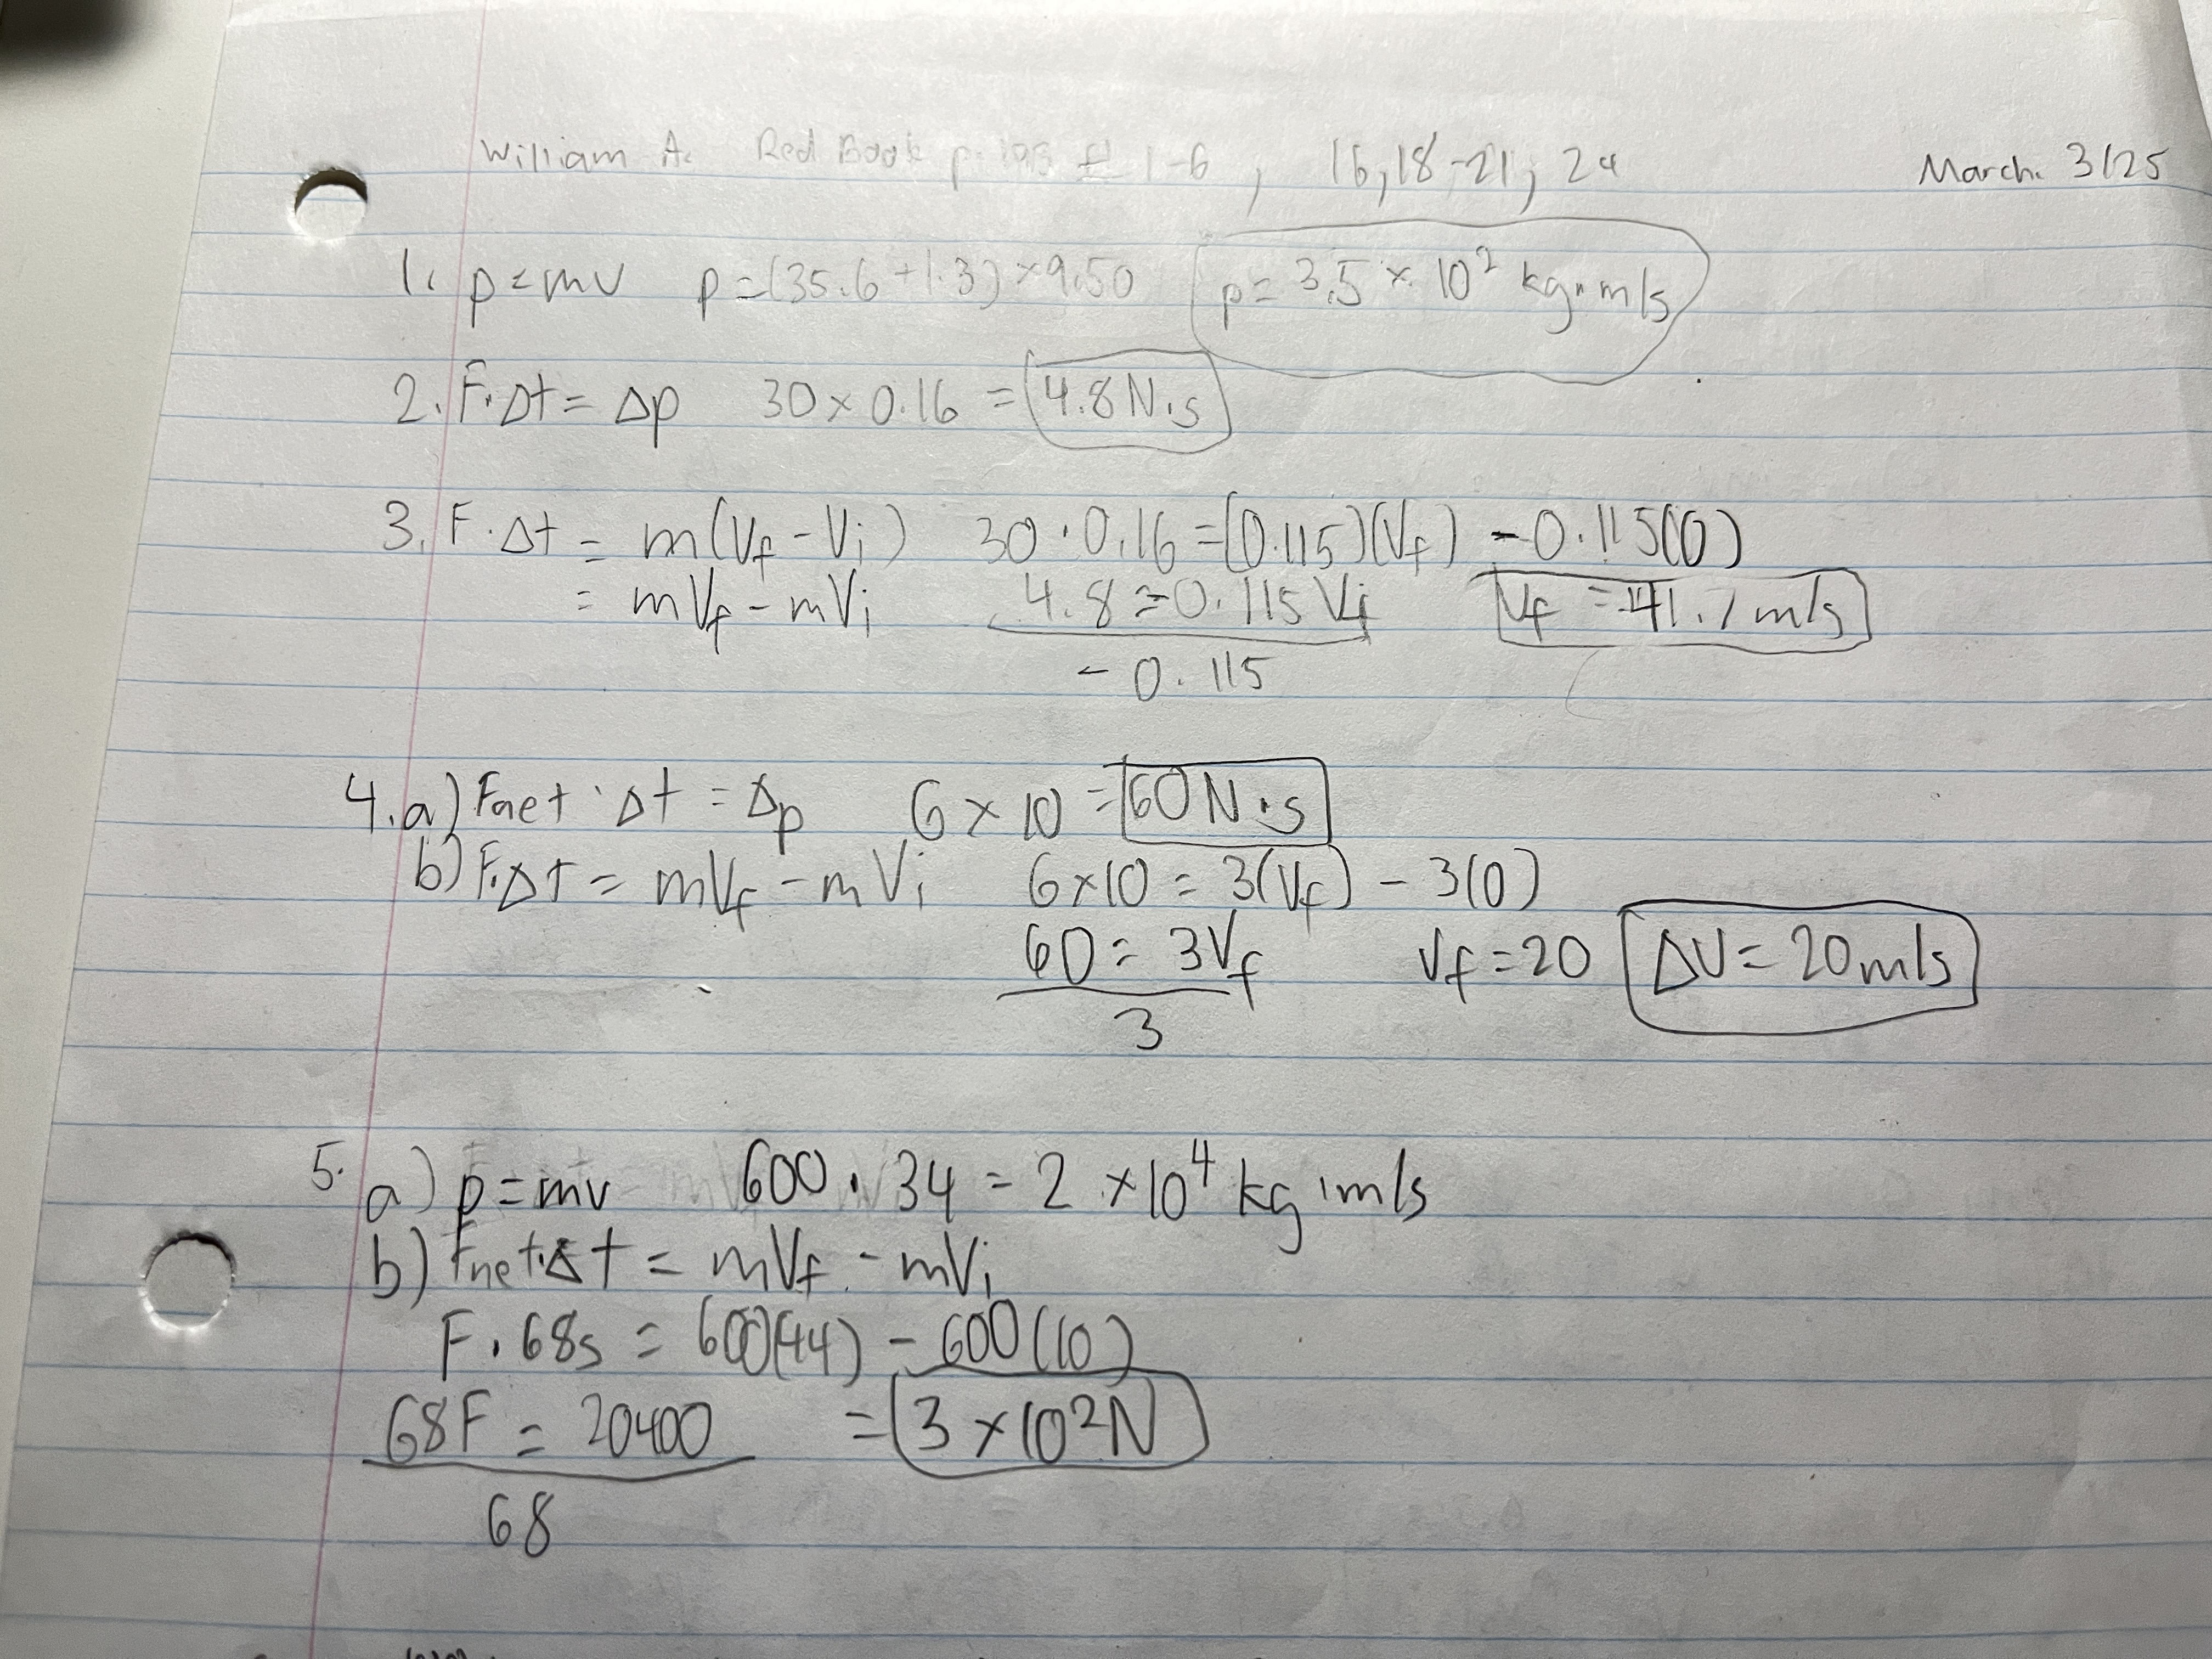 William A. Red Book p. 193 # 1-6, 16,18-21, 24 March. 3/25
1. p=mv p=(35.6+1.3)×9.50 p= 3.5 × 10² kg·m/s
2. F·Δt = Δp 30×0.16 = 4.8 N·s
3. F·Δt = m(Vf - Vi) 30·0.16=(0.115)(Vf) -0.115(0)
= mVf - mVi 4.8=0.115 Vf Vf = 41.7 m/s
-0.115
4. a) Fnet · Δt = Δp 6 × 10 = 60 N·s
b) F·Δt = mVf - mVi 6×10 = 3(Vf) - 3(0)
60 = 3Vf Vf = 20 ΔV= 20m/s
3
5. a) p=mv 600 · 34 = 2 ×10⁴ kg·m/s
b) Fnet·Δt = mVf - mVi
F · 68s = 600(44) - 600(10)
68F = 20400 = 3 ×10²N
68